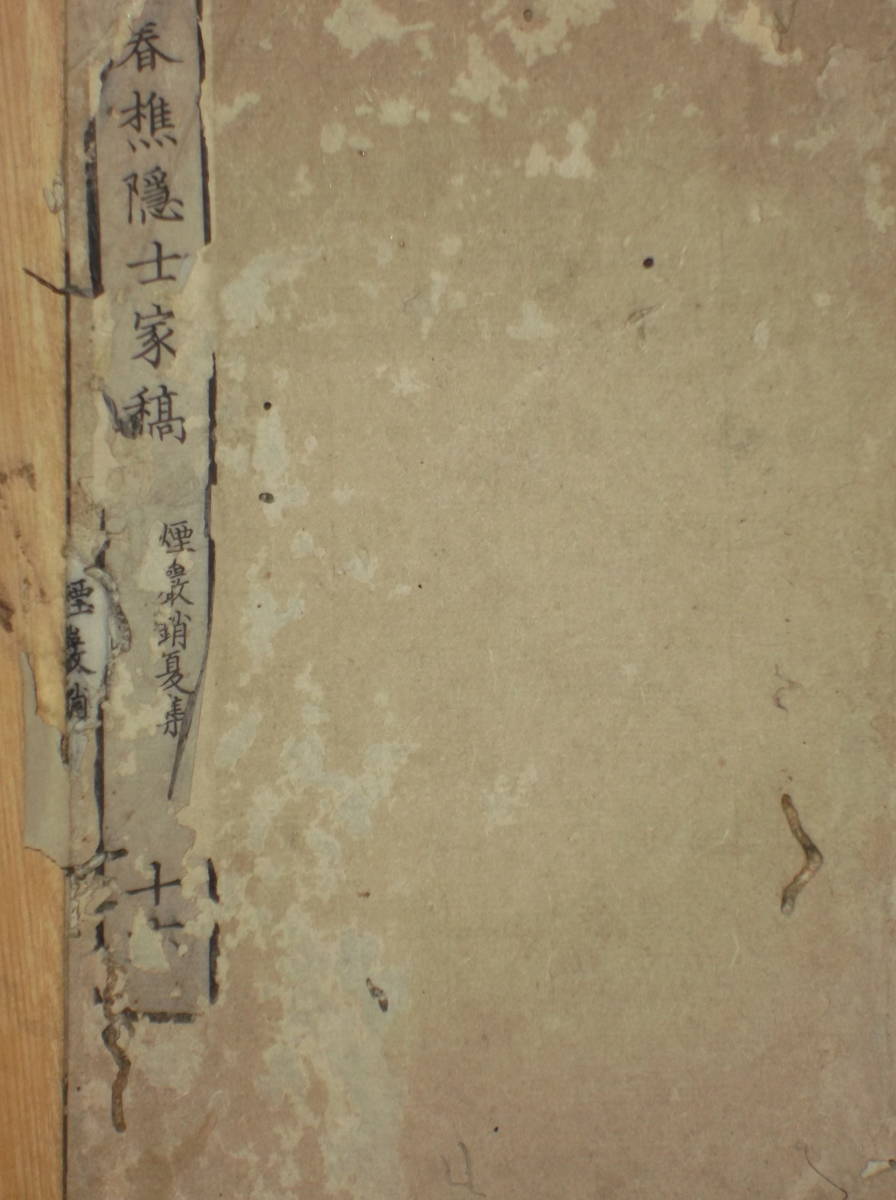 春樵隱士家稿
煙巖銷夏集
十六
煙巖銷